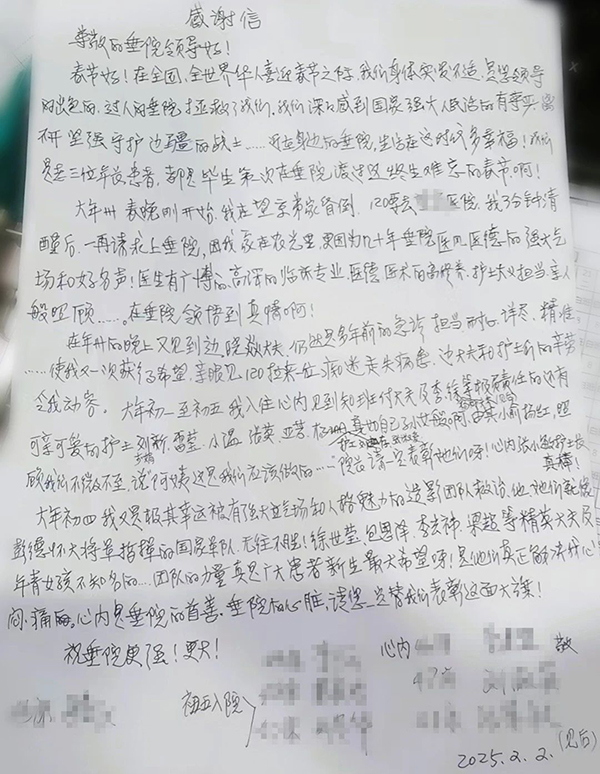 感谢信
尊敬的垂院领导好！
春节好！在全国、全世界华人喜迎春节之际，我们身体突发不适，是您领导
的出色的、过人的垂院拯救了我们。我们深深感到国家强大人民活的有尊严
坚强守护边疆的战士……近在身边的垂院，生活在这时代多幸福！我们
是三位年长患者，都是毕生第一次在垂院渡过这终生难忘的春节啊！
大年卅春晚刚开始，我在望京常家昏倒，120要去医院，我3分钟清
醒后，一再请求上垂院，因我家在农光里，更因为几十年垂院医风医德的强大气
场和好名声！医生有广博的、高深的临床专业、医德医术的高修养，护士有担当亲人
般照顾……。在垂院领悟到真情啊！
在年卅的晚上又见到边晓大夫，仍然是多年前的急诊担当耐心、详尽、精准
……使我又一次获得希望，亲眼见120拉来一位迷走失病患，边大夫和护士们的辛劳
令我动容。大年初一至初五我入住心内见到知班付大夫及李、徐等极负责任的还有
可亲可爱的护士刘新、雷莹、小温、张英、亚芳、真如自己子女般啊，照
顾我们不微不至，说“阿姨这是我们应该做的……”院长请一定表彰她们呀！心内张小敏护士长
真棒！
大年初四我又是极其幸运被有强大气场和人格魅力的造影团队救治，他、她们就像
彭德怀大将军指挥的国家军队，无往不胜！徐世莹、包恩泽、李志祎、梁超等精英大夫及
年青女孩不知名的……团队的力量真是广大患者新生最大希望呀！是他们真正解决我心
问、痛。心内是垂院的首善、垂院的心脏，请您一定替我们表彰这面大旗！
祝垂院更强！更大！
心内
敬
初五入院
47床
2025.2.2.(见后)